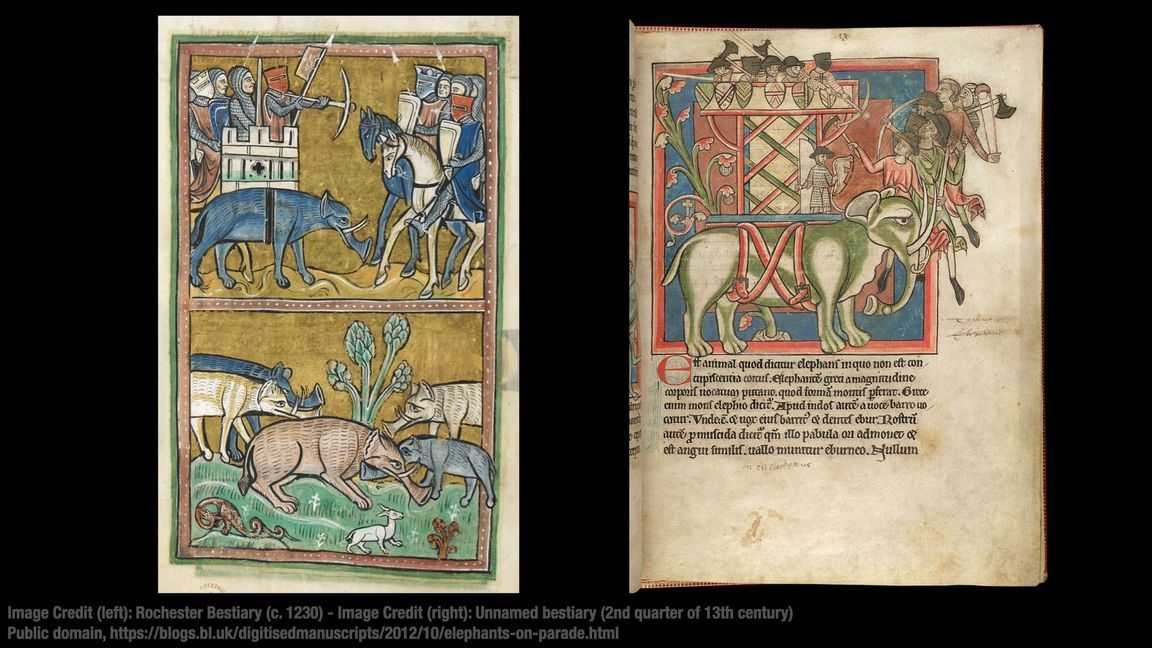 Est animal quod dicitur elephans in quo non est con-
cupiscentia coitus. Elephantē greci a magnitudine
corporis vocatum putant, quod formā montis p̄ferat. Grece
enim mons elephio dicit̄. Apud indos autē a voce barro vo-
catur. Vnde & vox eius barrit̄ & dentes ebur. Rostrū
autē p̄muscida dicit̄ qm̄ illo pabula ori admovet &
est angui similis. vallo munitur eburneo. Nullum
Image Credit (left): Rochester Bestiary (c. 1230) - Image Credit (right): Unnamed bestiary (2nd quarter of 13th century)
Public domain, https://blogs.bl.uk/digitisedmanuscripts/2012/10/elephants-on-parade.html